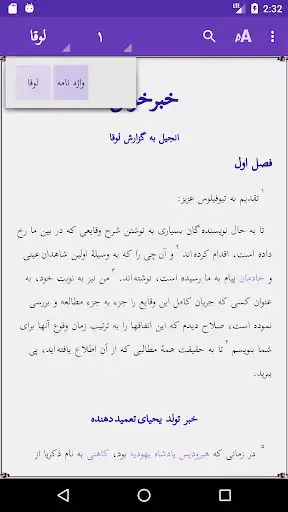 2:32
لوقا
۱
AA
لوقا
واژه نامه
انجیل به گزارش لوقا
فصل اول
۱ تقدیم به تیوفیلوس عزیز:
تا به حال نویسنده گان بسیاری به نوشتن شرح وقایعی که در بین ما رخ
داده است، اقدام کرده اند ۲ و آن چی را که به وسیلۀ اولین شاهدان عینی
و خادمان پیام به ما رسیده است، نوشته‌اند. ۳ من نیز به نوبت خود، به
عنوان کسی که جریان کامل این وقایع را جزء به جزء مطالعه و بررسی
نموده است، صلاح دیدم که این اتفاقها را به ترتیب زمان وقوع آنها برای
شما بنویسم ۴ تا به حقیقت همۀ مطالبی که از آن اطلاع یافته اید، پی
ببرید.
خبر تولد یحیای تعمید دهنده
۵ در زمانی که هیرودیس پادشاه یهودیه بود، کاهنی به نام ذکریا از